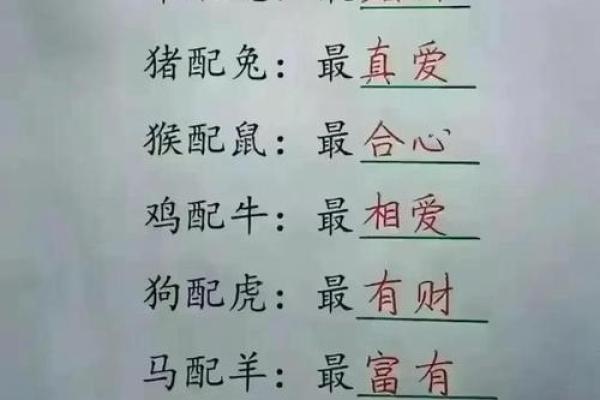 猪配兔：最真爱
猴配鼠：最合心
鸡配牛：最相爱
狗配虎：最有财
马配羊：最富有